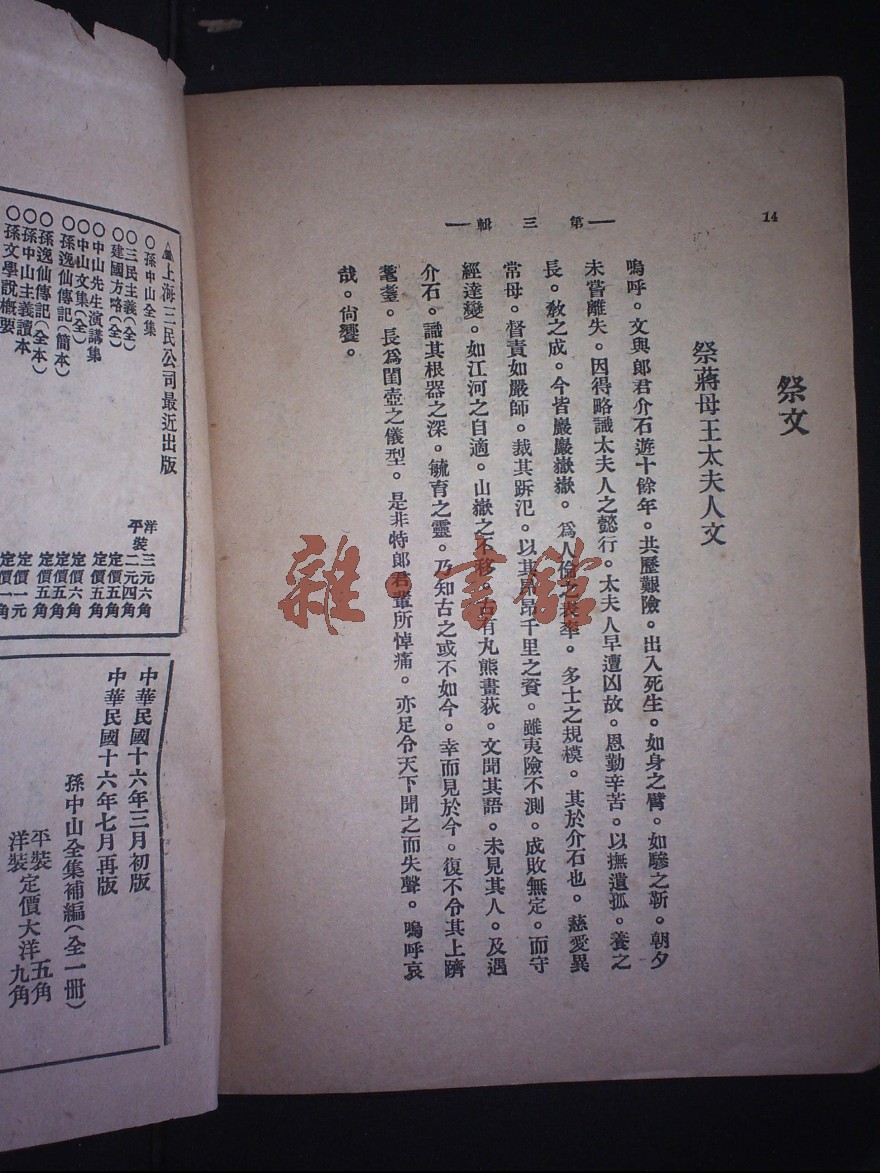 14
—第三輯—
祭文
祭蔣母王太夫人文
嗚呼。文與郎君介石遊十餘年。共歷艱險。出入死生。如身之臂。如驂之靳。朝夕
未嘗離失。因得略識太夫人之懿行。太夫人早遭凶故。恩勤辛苦。以撫遺孤。養之
長。敎之成。今皆巖巖嶽嶽。爲人倫之表率。多士之規模。其於介石也。慈愛異
常母。督責如嚴師。裁其跅氾。以其昂昂千里之資。雖夷險不測。成敗無定。而守
經達變。如江河之自適。山嶽之不移。古有丸熊畫荻。文聞其語。未見其人。及遇
介石。識其根器之深。毓育之靈。乃知古之或不如今。幸而見於今。復不令其上躋
耄耋。長爲閨壼之儀型。是非特郎君輩所悼痛。亦足令天下聞之而失聲。嗚呼哀
哉。尙饗。
上海三民公司最近出版
○孫中山全集 洋裝三元六角 平裝二元四角
○三民主義(全) 定價五角
○建國方略(全) 定價五角
○中山先生演講集 定價六角
○中山文集(全) 定價五角
○孫逸仙傳記(簡本) 定價五角
○孫逸仙傳記(全本) 定價一元
○孫中山主義讀本
○孫文學說概要 定價一角
中華民國十六年三月初版
中華民國十六年七月再版
孫中山全集補編(全一冊)
平裝定價大洋五角
洋裝定價大洋九角
雜·書館